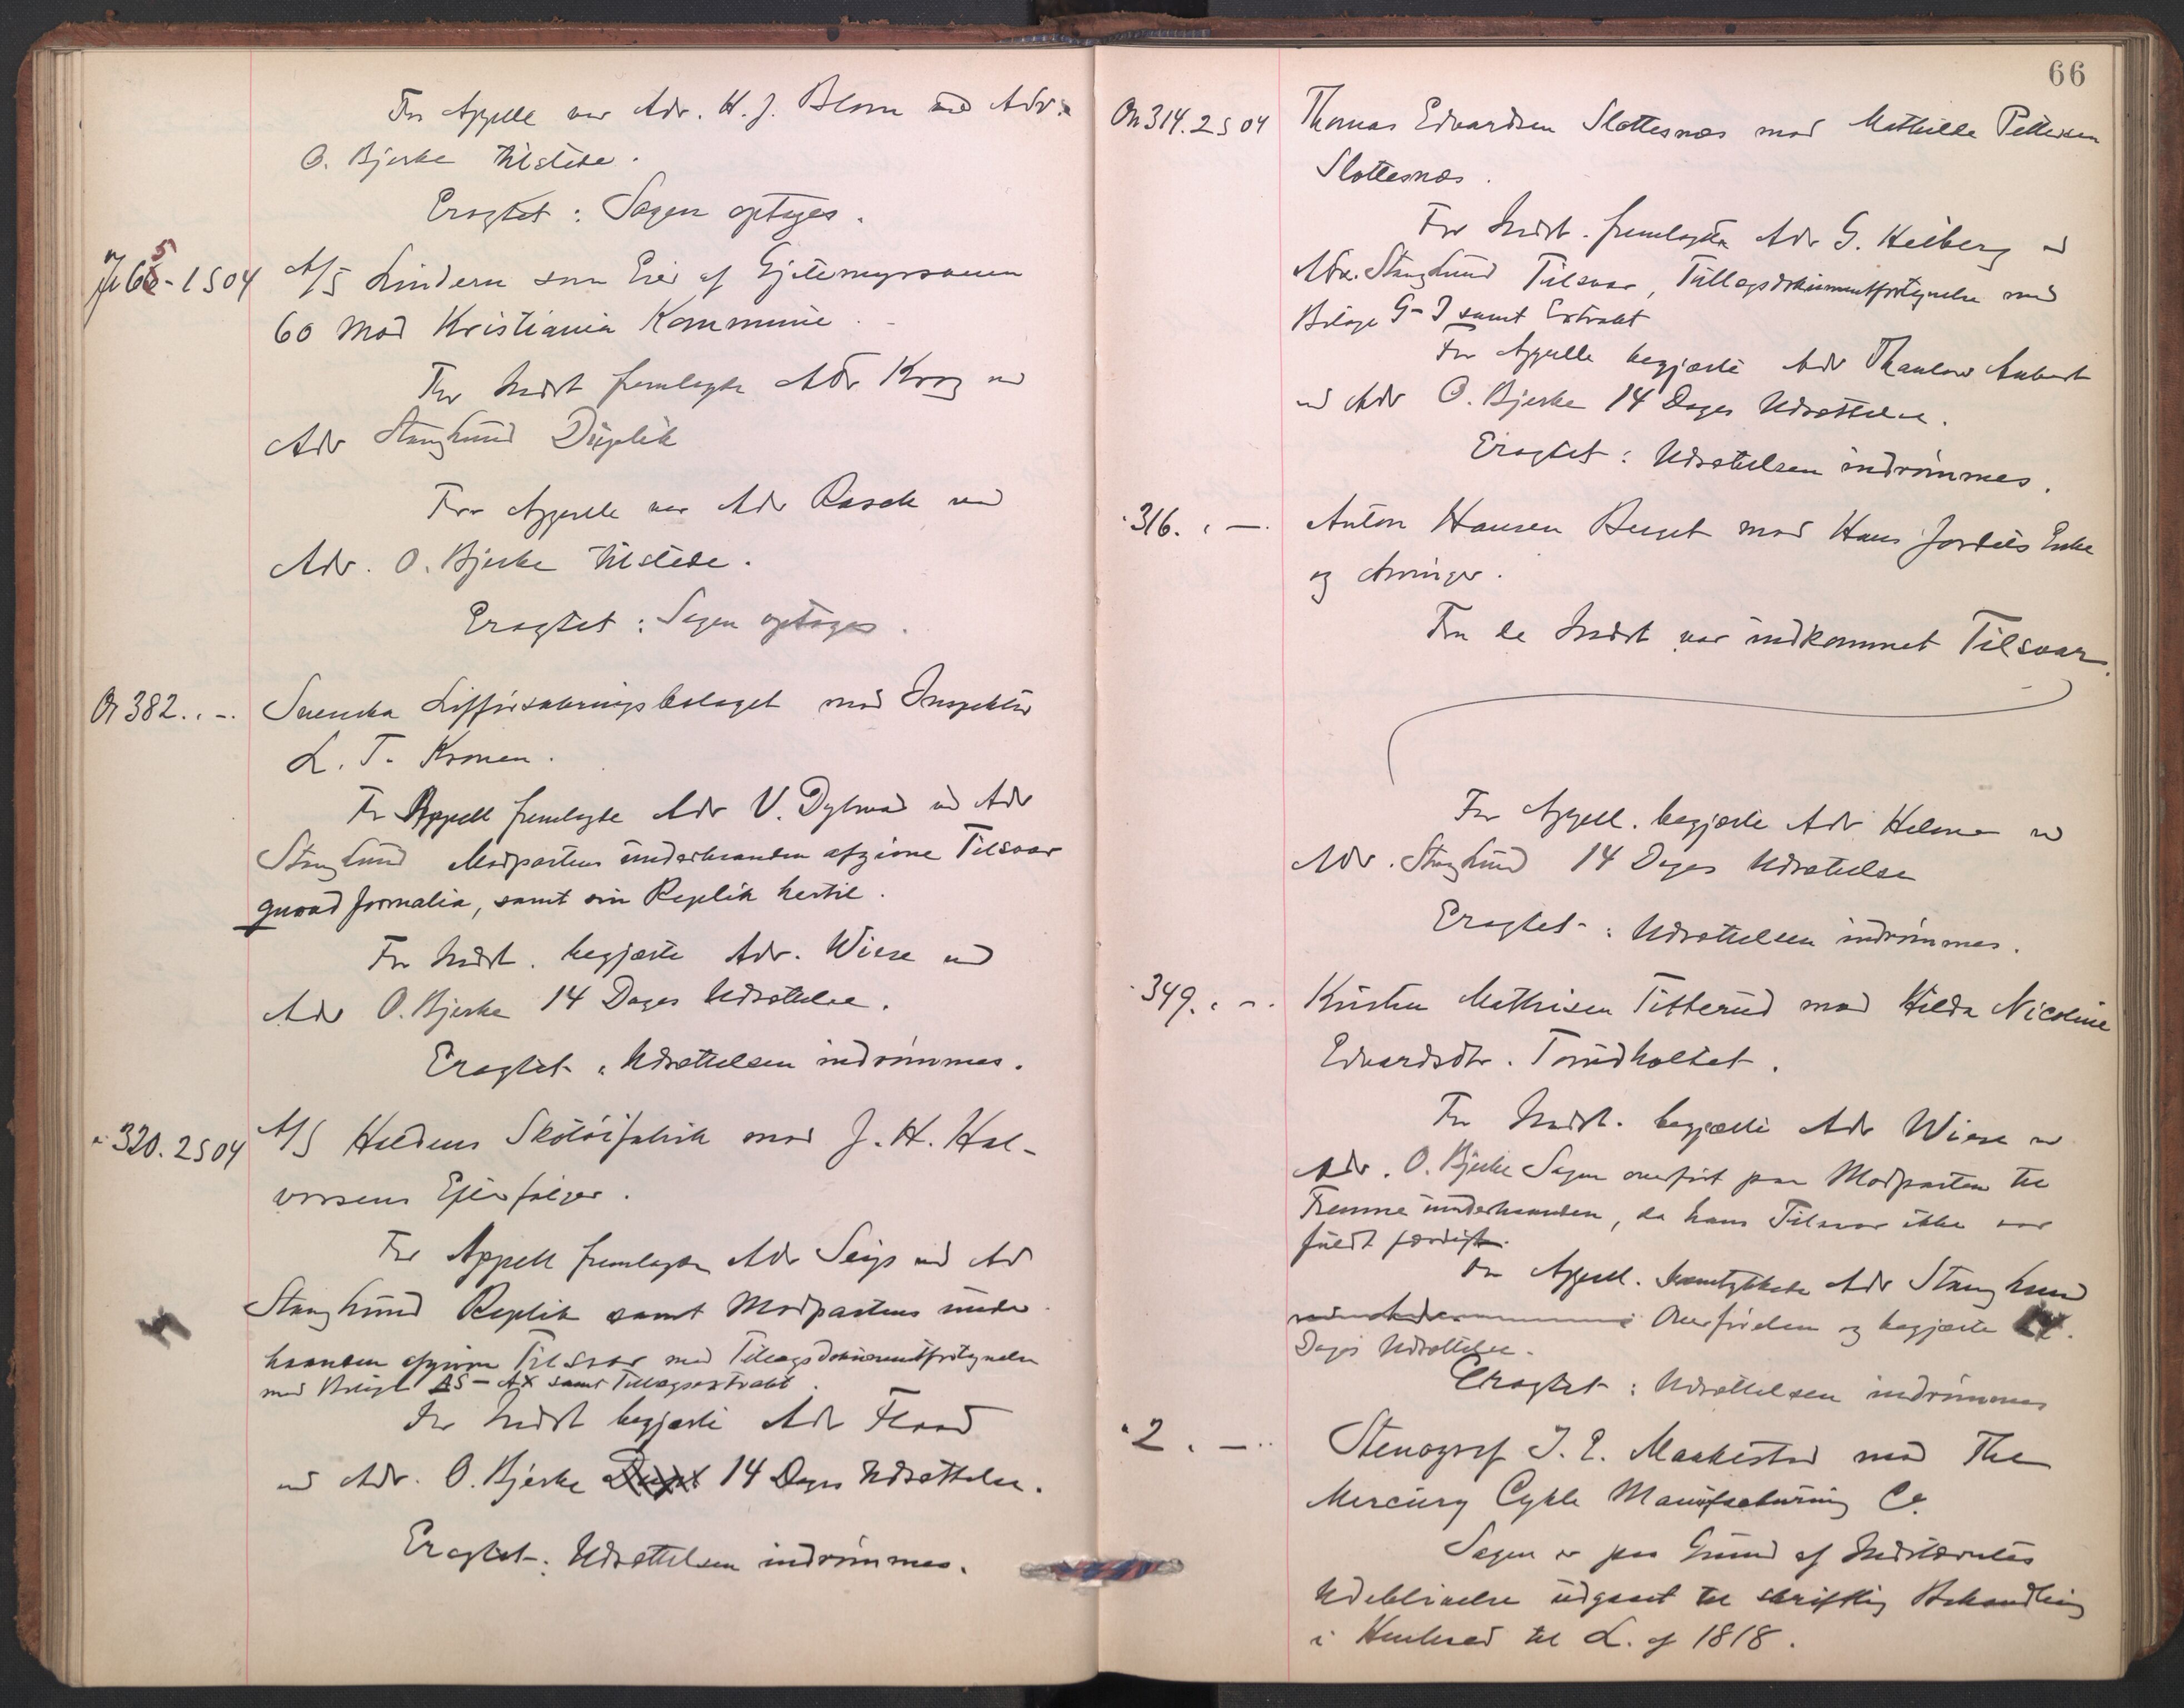 For Appelle var Adv. H. J. Blom ved Adv.
O. Bjerke tilstede.
Eragtet: Sagen optages.
65 - 1 S 04 A/S Lindern som Eier af Gjetemyrsveien
60 mod Kristiania Kommune.
For Indst fremlagte Adv Krog ved
Adv Stang Lund Duplik
For Appelle var Adv Rasch ved
Adv. O. Bjerke tilstede.
Eragtet: Sagen optages.
Or 382. " - Svenska Lifförsäkringsbolaget mod Inspektør
L. T. Kronen.
Fr Appell fremlagte Adv V. Dybwad ved Adv
Stang Lund Modpartens underhaanden afgivne Tilsvar
quoad formalia, samt sin Replik hertil.
For Indst. begjærte Adv. Wiese ved
Adv O. Bjerke 14 Dages Udsættelse.
Eragtet: Udsættelsen indrømmes.
" 320. 2 S 04 A/S Haldens Skotøifabrik mod J. H. Hal-
vorsens Efterfølger.
For Appell fremlagte Adv Seip ved Ad
Stang Lund Replik samt Modpartens under
haanden afgivne Tilsvar med Tillægsdokumentfortegnelse
med Bilage AS - AX samt Tillægsextrakt.
For Indst begjærte Adv Flood
ved Adv. O. Bjerke 14 Dages Udsættelse.
Eragtet: Udsættelsen indrømmes.
66
On 314. 2 S 04 Thomas Edvardsen Slottesnæs mod Mathilde Pettersen
Slottesnæs.
For Indst. fremlagte Adv G. Heiberg ved
Adv. Stang Lund Tilsvar, Tillægsdokumentfortegnelse med
Bilage G - I samt Extrakt
For Appelle begjærte Adv Thaulow Aubert
ved Adv O. Bjerke 14 Dages Udsættelse.
Eragtet: Udsættelsen indrømmes.
" 316. " - Anton Hansen Berget mod Hans Jordets Enke
og Arvinger.
Fra de Indst var indkommet Tilsvar.
For Appell. begjærte Adv Helmer ved
Adv. Stang Lund 14 Dages Udsættelse
Eragtet: Udsættelsen indrømmes.
" 349. " - Kristen Mathisen Titterud mod Hilda Nicoline
Edvardsdtr. Torudholtet.
For Indst. begjærte Adv Wiese ved
Adv. O. Bjerke Sagen overført paa Modparten til
Fremme underhaanden, da hans Tilsvar ikke var
fuldt færdigt.
For Appell. samtykkede Adv Stang Lund
Overførelsen og begjærte 14
Dages Udsættelse.
Eragtet: Udsættelsen indrømmes
" 2. - " Stenograf I. E. Maakestad mod The
Mercury Cykle Manufacturing Co.
Sagen er paa Grund af Indstævntes
Udeblivelse udgaaet til skriftlig Behandling
i Henhold til L. af 1818.